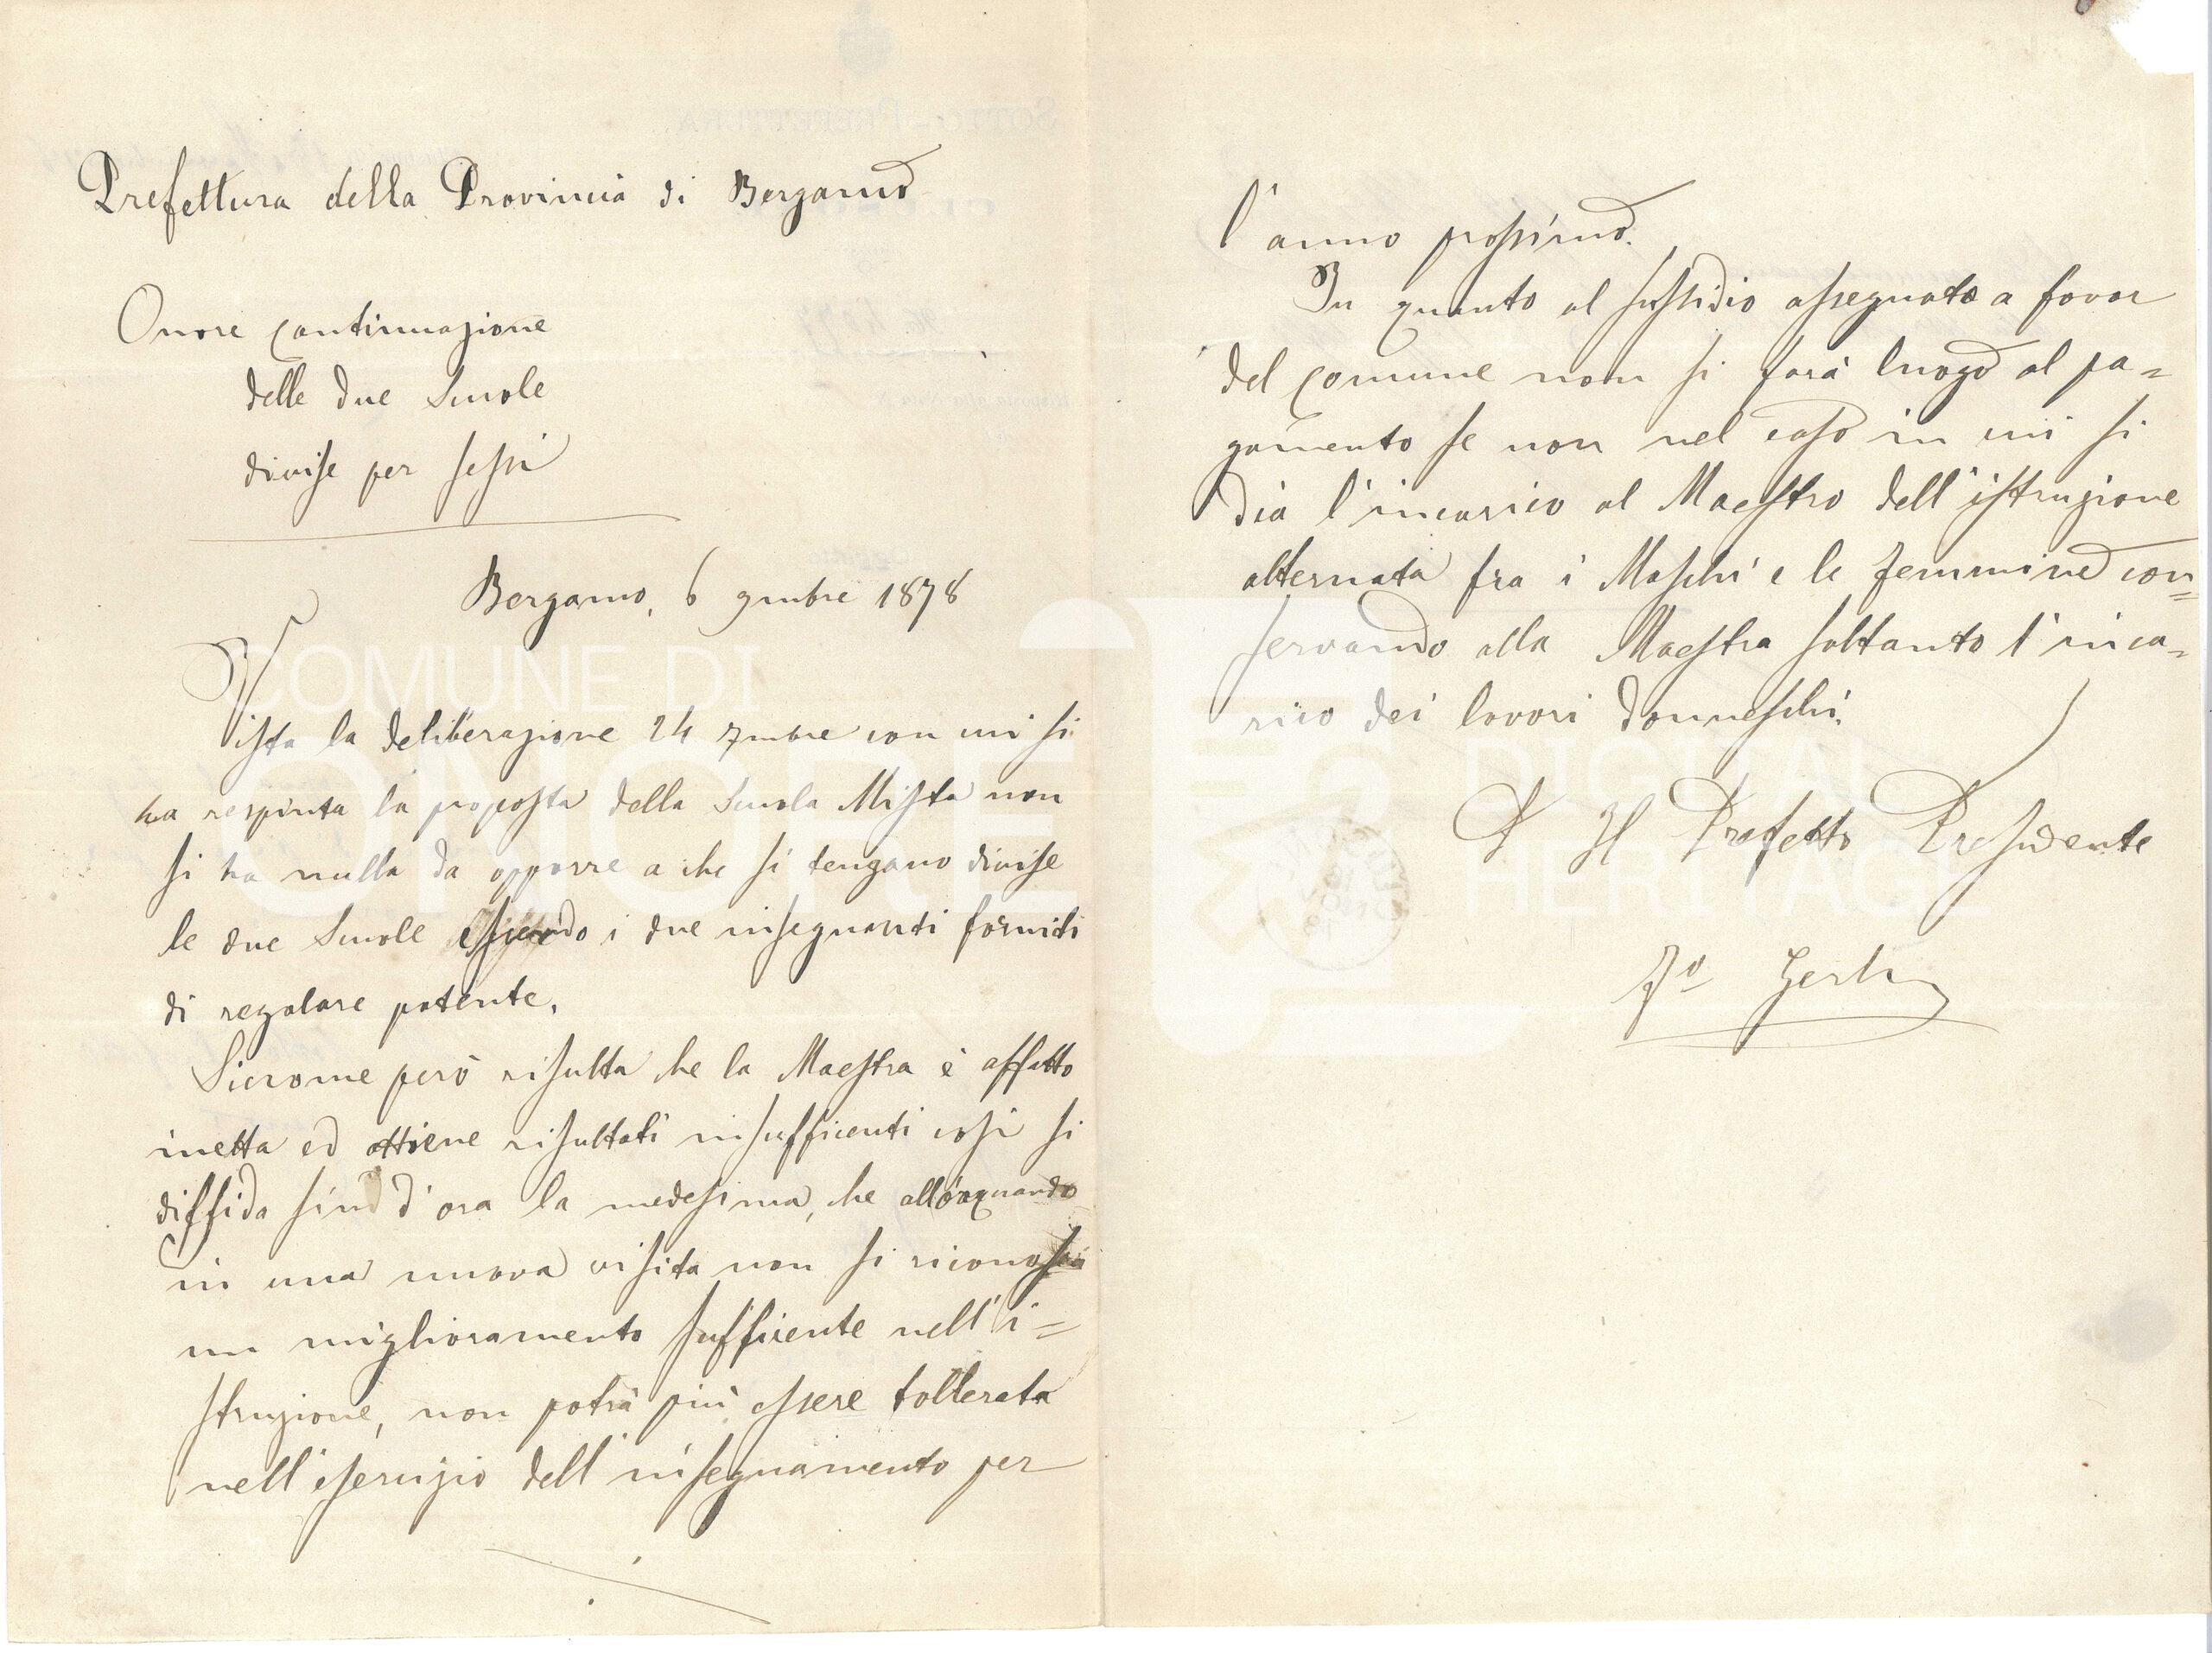 Prefettura della Provincia di Bergamo
Onore continuazione
delle due Scuole
divise per sessi
Bergamo, 6 9mbre 1878
Vista la deliberazione 24 7mbre con cui si
ha respinta la proposta della Scuola Mista non
si ha nulla da opporre a che si tengano divise
le due Scuole essendo i due insegnanti forniti
di regolare patente.
Siccome però risulta che la Maestra è affatto
inetta ed ottiene risultati insufficenti così si
diffida sino d'ora la medesima, che allorquando
in una nuova visita non si riconosca
un miglioramento sufficente nell'i=
struzione, non potrà più essere tollerata
nell'esercizio dell'insegnamento per
./.
l'anno prossimo.
In quanto al sussidio assegnato a favor
del comune non si farà luogo al pa=
gamento se non nel caso in cui si
dia l'incarico al Maestro dell'istruzione
alternata fra i Maschi e le femmine con=
servando alla Maestra soltanto l'inca=
rico dei lavori donneschi.
Il Prefetto Presidente
Fo
COMUNE DI
ONORE
DIGITAL
HERITAGE